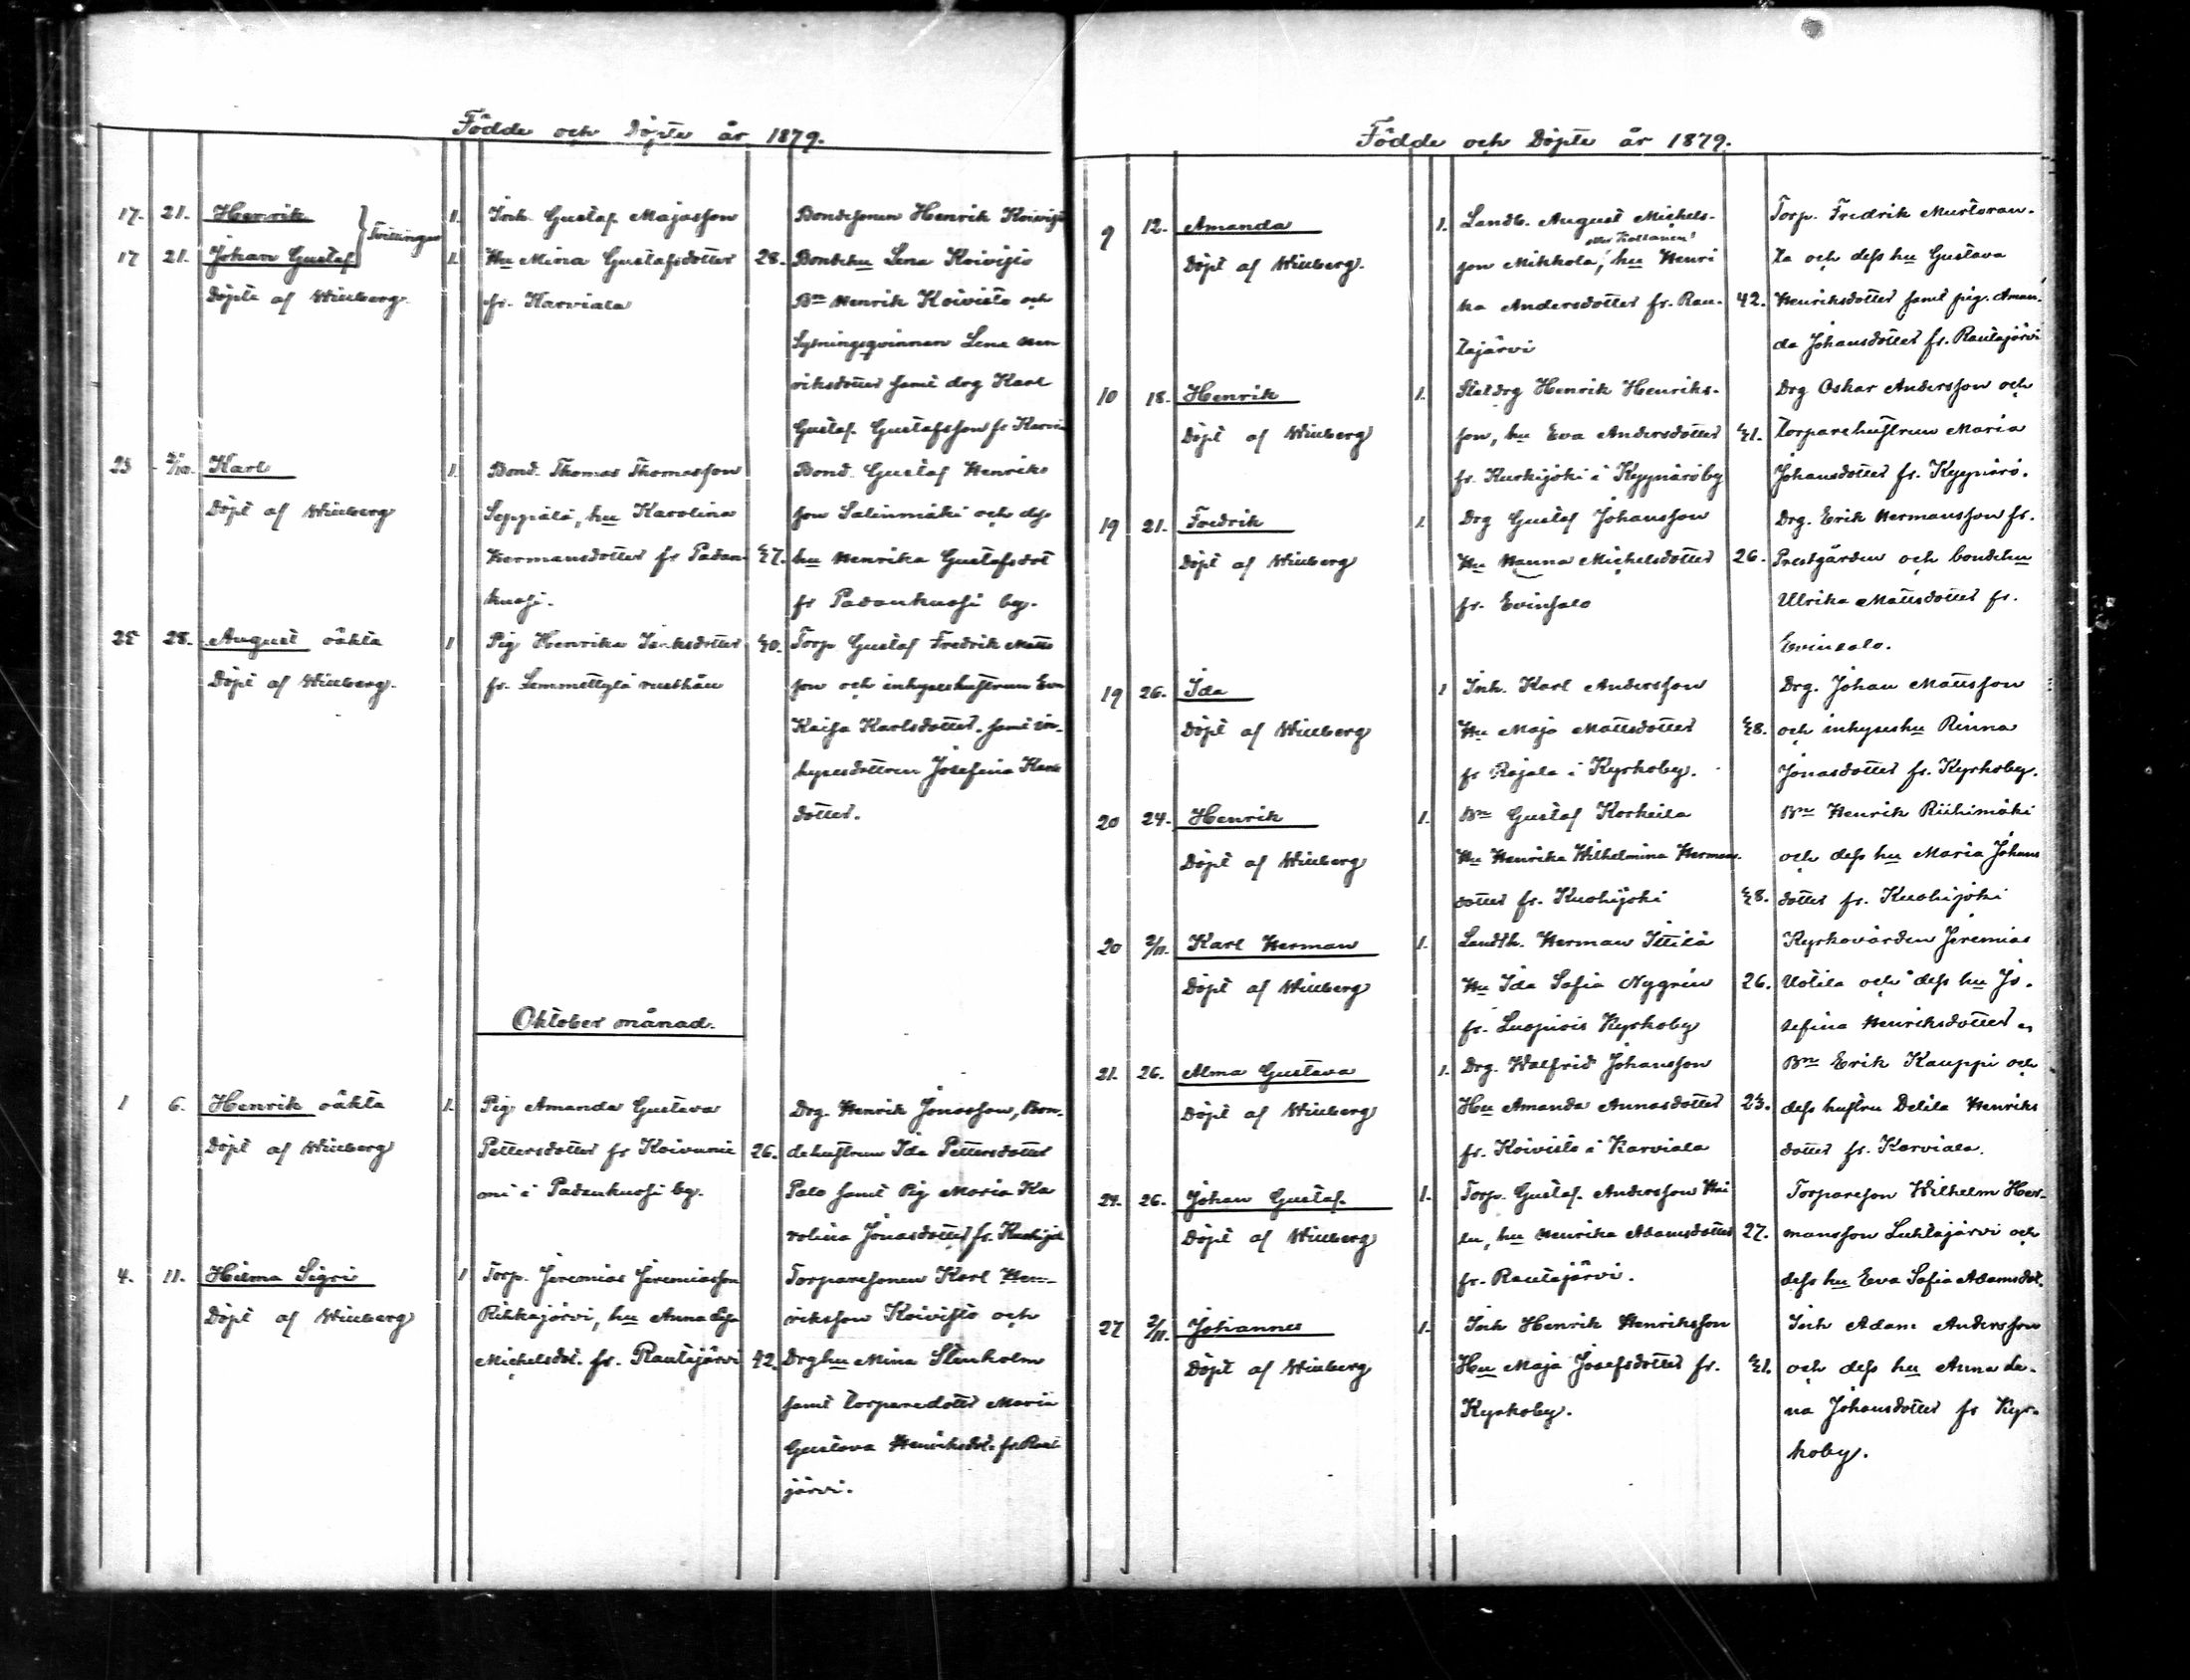 Födde och Döpte år 1879.
17. 21. Henrik 1. Inh. Gustaf Majasson Bondesonen Henrik Koivisto
Tvillingar
17 21. Johan Gustaf 1. Hu Mina Gustafsdotter 28. Bondehu Lena Koivisto
Döpte af Winberg. fr. Karviala Bn Henrik Koivisto och
Sytningsqvinnan Lena Hen
riksdotter samt drg Karl
Gustaf Gustafsson fr Karvia
25 5/10. Karl 1. Bond. Thomas Thomasson Bond. Gustaf Henriks
Döpt af Winberg Seppälä, hu Karolina son Salinmäki och dess
Hermansdotter fr Padan- 47. hu Henrika Gustafsdot
kuosi. fr Padankuosi by.
25 28. August oäkta 1 Pig Henrika Isaksdotter 40. Torp Gustaf Fredrik Matts
Döpt af Winberg. fr. Lemmettylä rusthåll son och inhyseshustrun Eva
Kaisa Karlsdotter, samt in-
hysesdottren Josefina Karls
dotter.
Oktober månad.
1 6. Henrik oäkta 1. Pig Amanda Gustava Drg. Henrik Jonasson, Bon-
Döpt af Winberg Pettersdotter fr Koivunie 26. dehustrun Ida Pettersdotter
mi i Padankuosi by. Palo samt Pig Maria Ka
rolina Jonasdotter fr. Kuohijoki
4. 11. Hilma Sigri 1 Torp. Jeremias Jeremiasson Torparesonen Karl Hen-
Döpt af Winberg Rikkajärvi, hu Anna Lisa riksson Koivisto och
Michelsdot. fr. Rautajärvi 42. Drghu Mina Stenholm
samt torparedotter Maria
Gustava Henriksdot. fr. Rauta
järvi.
Födde och Döpte år 1879.
9 12. Amanda 1. Landb. August Michels- Torp. Fredrik Mustaran-
eller Kollanen
Döpt af Winberg. son Mikkola, hu Henri ta och dess hu Gustava
ka Andersdotter fr. Rau- 42. Henriksdotter samt pig. Aman-
tajärvi da Johansdotter fr. Rautajärvi
10 18. Henrik 1. Statdrg Henrik Henriks- Drg Oskar Andersson och
Döpt af Winberg son, hu Eva Andersdotter 41. torparehustrun Maria
fr. Kurkijoki i Kyynäröby Johansdotter fr. Kyynärö.
19 21. Fredrik 1. Drg Gustaf Johansson Drg. Erik Hermansson fr.
Döpt af Winberg Hu Hanna Michelsdotter 26. Prestgården och bondehu
fr. Evinsalo Ulrika Mattsdotter fr.
Evinsalo.
19 26. Ida 1 Inh. Karl Andersson Drg. Johan Mattsson
Döpt af Winberg Hu Maja Mattsdotter 48. och inhyseshu Rinna
fr Rajala i Kyrkoby. Jonasdotter fr. Kyrkoby.
20 24. Henrik 1. Bn Gustaf Korkeila Bn Henrik Riihimäki
Döpt af Winberg Hu Henrika Wilhelmina Hermans- och dess hu Maria Johans
dotter fr. Kuohijoki 48. dotter fr. Kuohijoki
20 2/11. Karl Herman 1. Landth. Herman Ittilä Kyrkovärden Jeremias
Döpt af Winberg Hu Ida Sofia Nygrén 26. Uotila och dess hu Jo-
fr. Luopiois Kyrkoby sefina Henriksdotter
21. 26. Alma Gustava 1. Drg. Walfrid Johansson Bn Erik Kauppi och
Döpt af Winberg Hu Amanda Annasdotter 23. dess hustru Delila Henriks
fr. Koivisto i Karviala dotter fr. Karviala.
24. 26. Johan Gustaf 1. Torp. Gustaf Andersson Torpareson Wilhelm Her-
Döpt af Winberg hu Henrika Adamsdotter 27. mansson Luhtajärvi och
fr. Rautajärvi. dess hu Eva Sofia Adamsdot.
27 2/11. Johannes 1. Inh Henrik Henriksson Inh Adam Andersson
Döpt af Winberg Hu Maja Josefsdotter fr. 41. och dess hu Anna Le-
Kyrkoby. na Johansdotter fr Kyr-
koby.